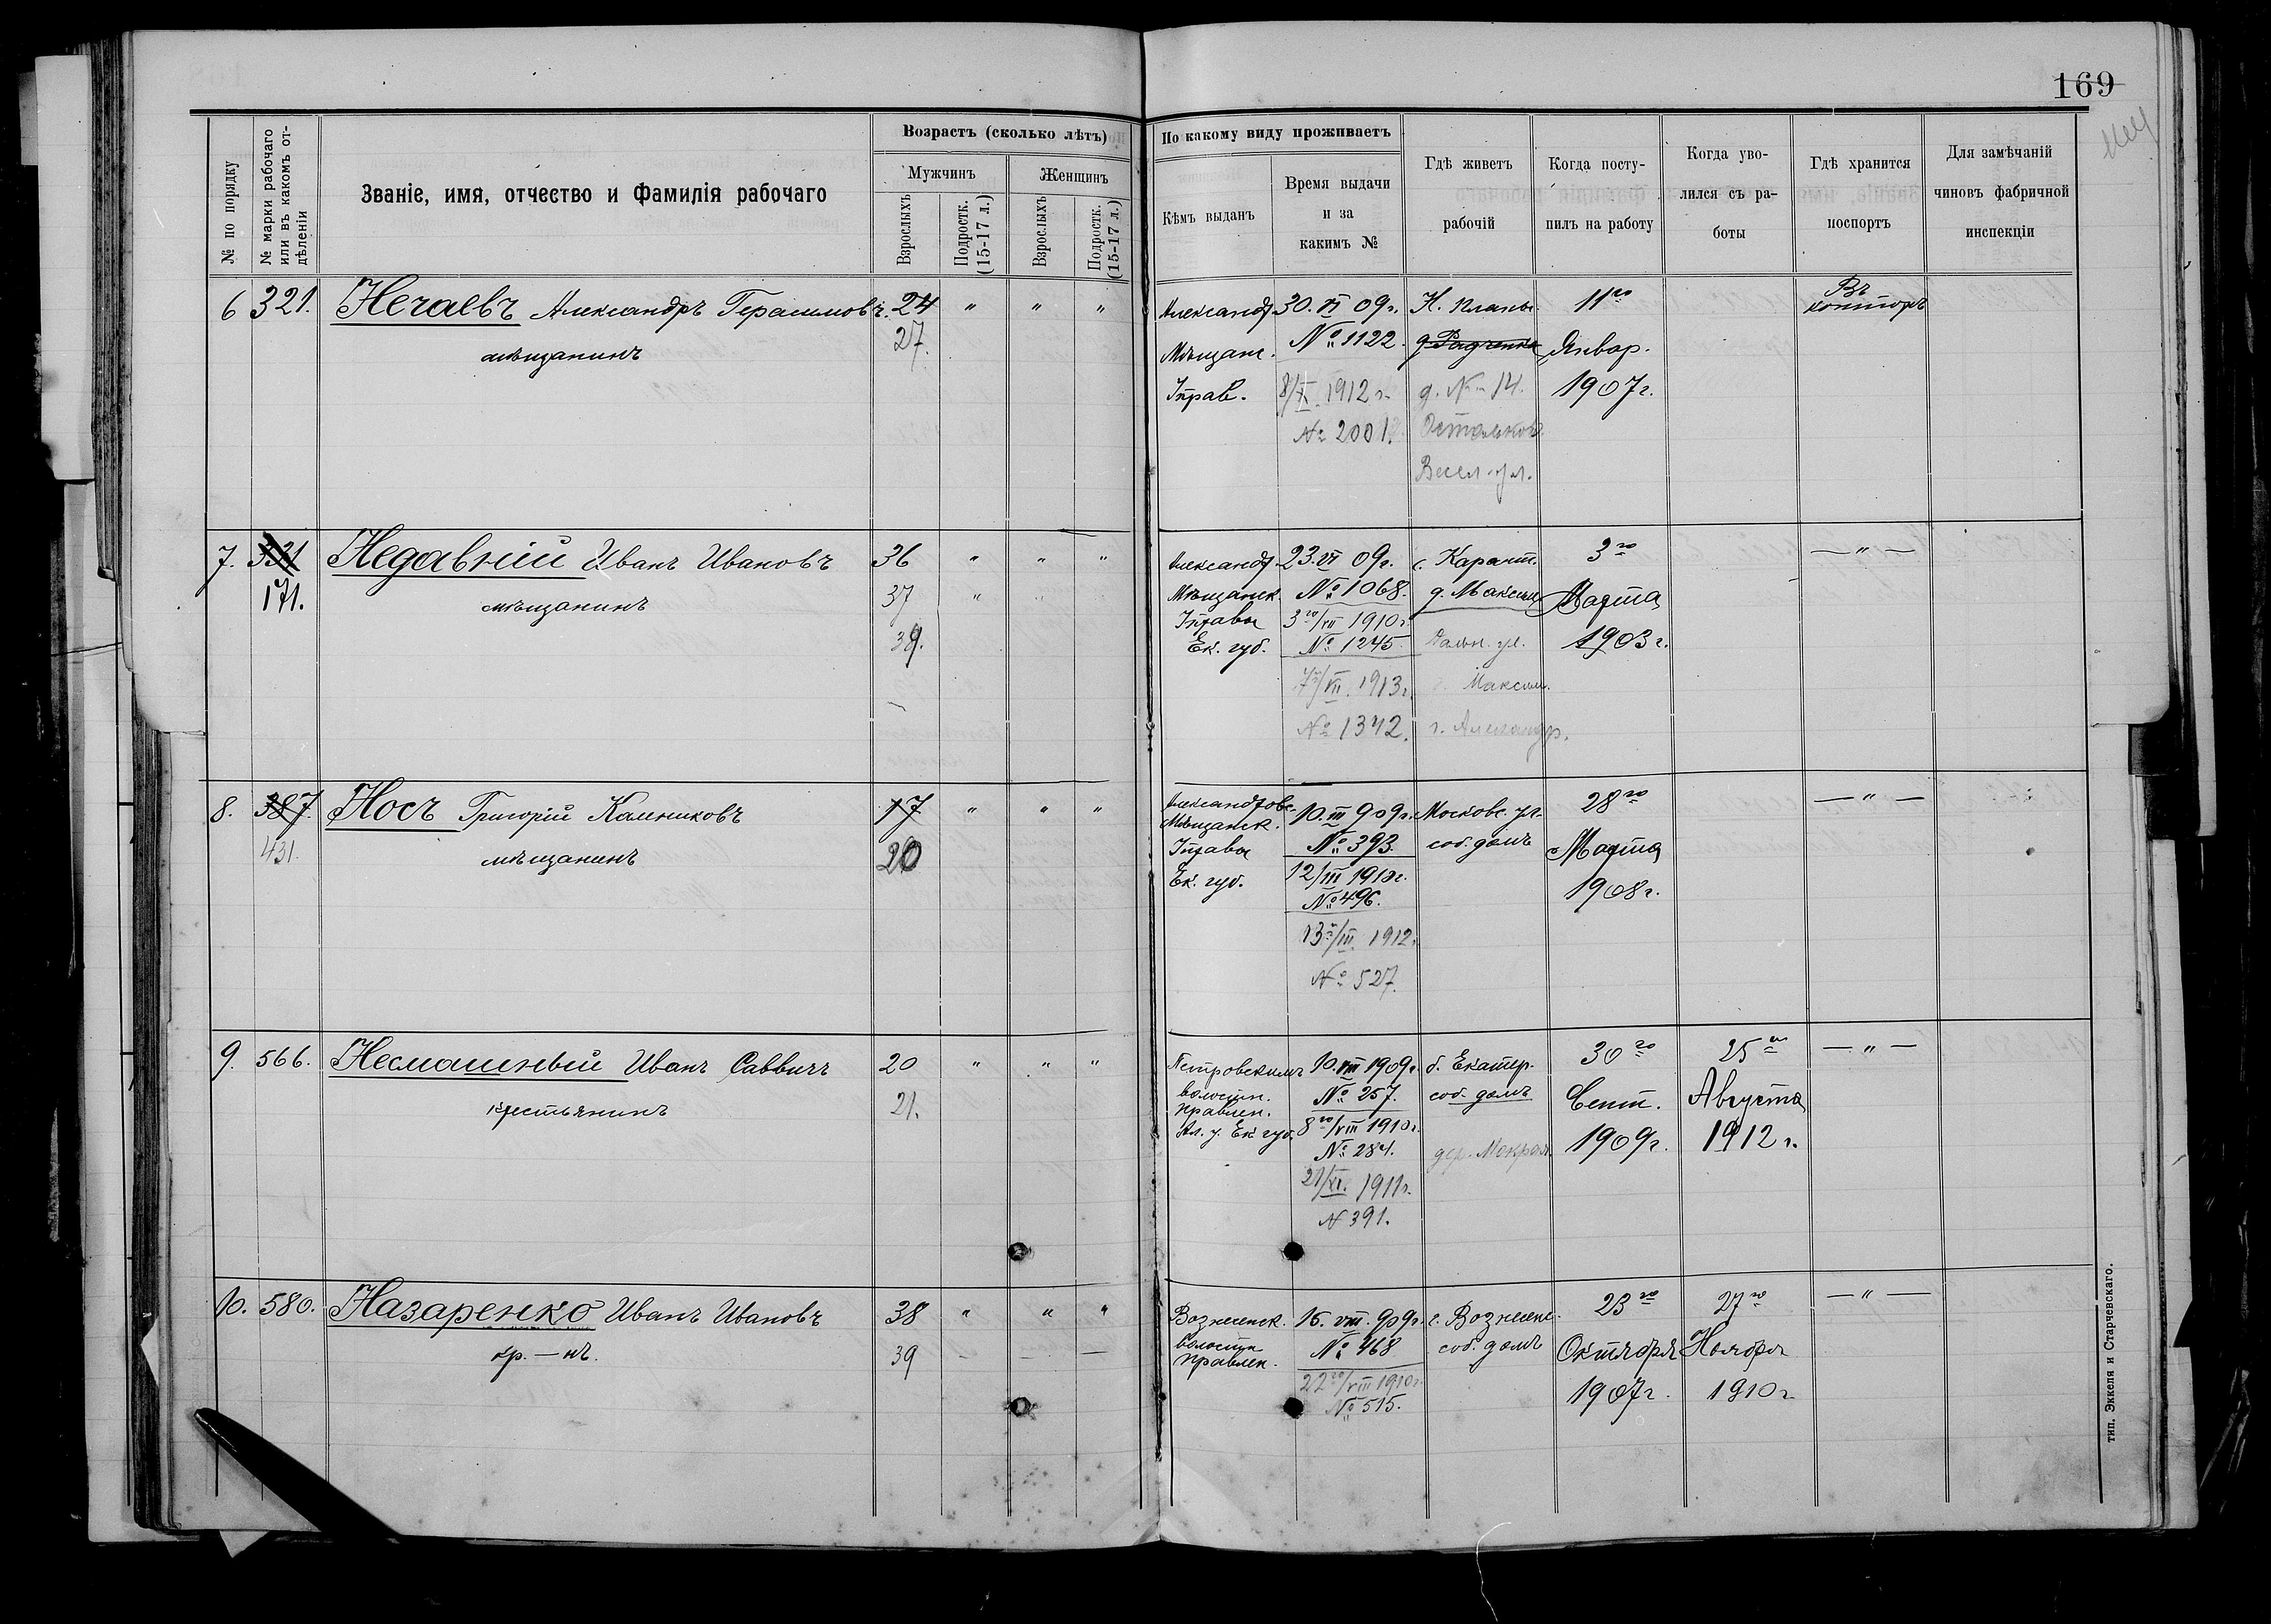 169
№ по порядку
№ марки рабочаго
или въ какомъ от-
дѣленіи
Званіе, имя, отчество и фамилія рабочаго
Возрастъ (сколько лѣтъ)
Мужчинъ
Женщинъ
Взрослыхъ
Подростк.
(15-17 л.)
Взрослыхъ
Подростк.
(15-17 л.)
По какому виду проживаетъ
Кѣмъ выданъ
Время выдачи
и за
какимъ №
Гдѣ живетъ
рабочій
Когда посту-
пилъ на работу
Когда уво-
лился съ ра-
боты
Гдѣ хранится
поспортъ
Для замѣчаній
чиновъ фабричной
инспекціи
6 321. Нечаевъ Александръ Герасимовъ. 24 " " "
мѣщанинъ
27.
Александ.
Мѣщанс.
Управ.
30. VI 09 г.
№ 1122.
8/X 1912 г.
№ 2001.
Н. планы.
д. № 14.
Весел. ул.
11го
Январ.
1907 г.
Въ
конторѣ
7. 321 Недавній Иванъ Ивановъ 36 " " "
171.
мѣщанинъ
37 "
39.
Александ.
Мѣщанск.
Управы
Ек. губ.
23. VI 09 г.
№ 1068.
3го/VII 1910 г.
№ 1245.
7го/VII. 1913 г.
№ 1342.
с. Карант.
д. Максим.
ул.
Максим.
г. Александр.
3го
Марта
1903 г.
— " —
8. 387. Носъ Григорій Калениковъ 17 " " "
431.
мѣщанинъ
20
Александровс.
Мѣщанск.
Управы
Ек. губ.
10. III 909 г.
№ 393.
12/III 1910 г.
№ 496.
13го/III 1912 г.
№ 527.
Московс. ул.
соб. домъ
28го
Марта
1908 г.
— " —
9. 566. Несмашный Иванъ Саввичъ 20 " " "
крестьянинъ
21.
Петровскимъ
волостн.
правлен.
Ал. у. Ек. губ.
10. VIII 1909 г.
№ 257.
8го/VIII 1910 г.
№ 284.
21/XI. 1911 г.
№ 391.
б. Екатер.
соб. домъ
дер. Мокрая
30го
Сент.
1909 г.
25го
Августа
1912 г.
— " —
10. 580. Назаренко Иванъ Ивановъ 38 " " "
кр.—нъ.
39 — —
Вознесенск.
волостн
правлен.
16. VIII. 909 г.
№ 468
22го/VIII 1910 г.
№ 515.
с. Вознесенс.
соб. домъ
23го
Октября
1907 г.
27го
Ноября
1910 г
— " —
тип. Эккеля и Старчевскаго.